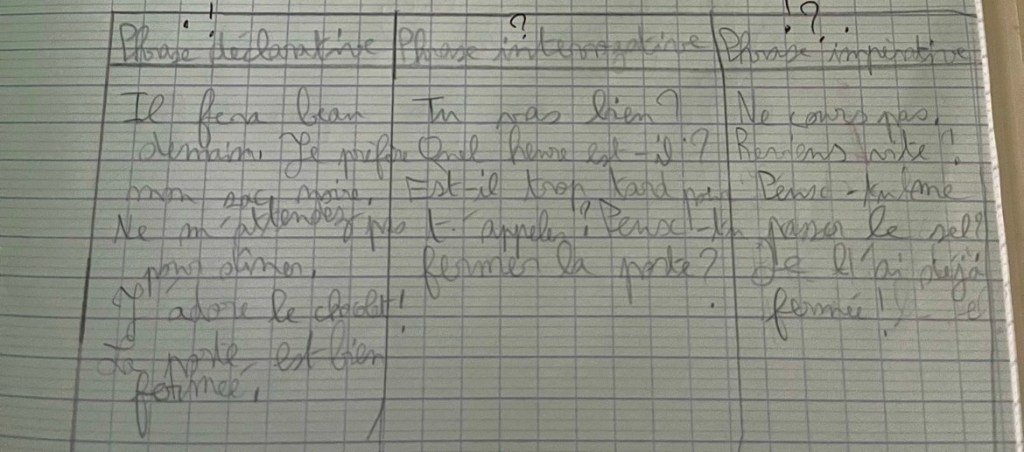 . !
?
! ?
Phrase déclarative
Phrase interrogative
Phrase impérative
Il fera beau
demain. Je préfère
mon sac noire.
Ne m'attendez pas
pour dîner.
J'adore le chocolat!
La porte est bien
fermée.
Tu vas bien?
Quel heure est-il?
Est-il trop tard pour
t'appeler? Peux-tu
fermer la porte?
Ne cours pas.
Reviens vite!
passer le sel?
Je l'ai déjà
fermée!